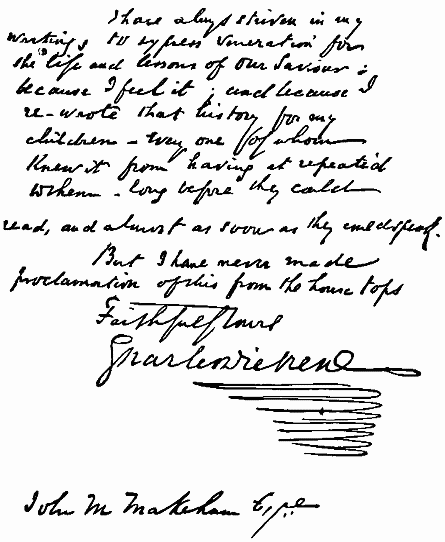 I have always striven in my
writings to express veneration for
the life and lessons of Our Saviour;
because I feel it; and because I
re-wrote that history for my
children - every one of whom
knew it from having it repeated
to them - long before they could
read, and almost as soon as they could speak.
But I have never made
proclamation of this from the house tops
Faithfully Yours
Charles Dickens
John M Makeham Esqre